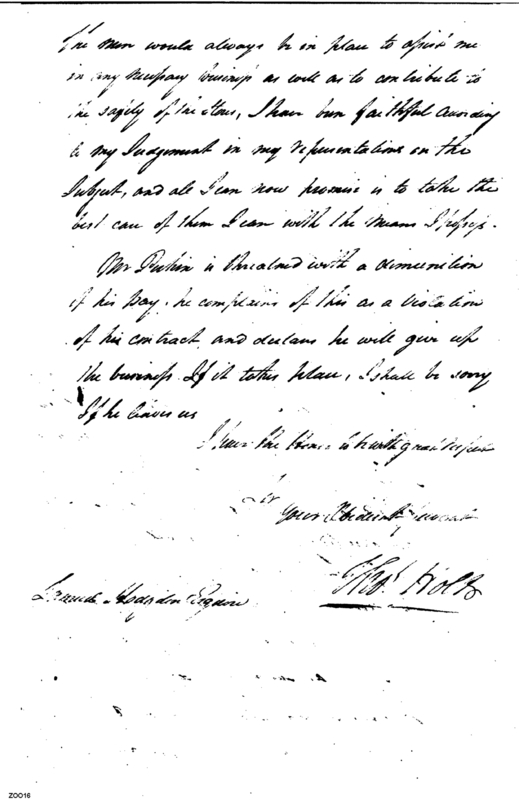 The men would always be in place to assist me
in any necessary business as well as to contribute to
the safety of the Stores, I have been faithful according
to my Judgement in my representations on the
Subject, and all I can now promise is to take the
best care of them I can with the means I possess.
Mr Ruhin is threatned with a dimunition
of his pay. he complains of this as a violation
of his contract, and declares he will give up
the business If it takes place, I shall be sorry
If he leaves us
I have the honor to be with great respect
Sir
Your Obedient Servant
Thos Holt
Samuel Hodgdon Esquire
ZOO16